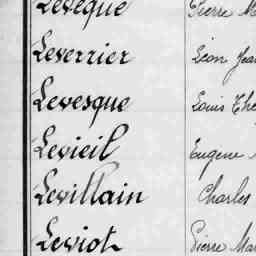 Levêque Pierre
Leverrier Léon Jean
Levesque Louis
Levieil Eugene
Levillain Charles
Leviot Pierre